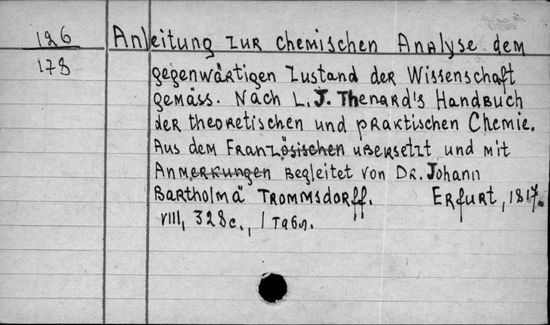 126
178
Anleitung zur chemischen Analyse dem
gegenwärtigen Zustand der Wissenschaft
gemäss. Nach L. J. Thenard's Handbuch
der theoretischen und praktischen Chemie.
Aus dem Französischen übersetzt und mit
Anmerkungen begleitet von Dr. Johann
Bartholmä Trommsdorff. Erfurt, 1817.
VIII, 328 с., 1 табл.